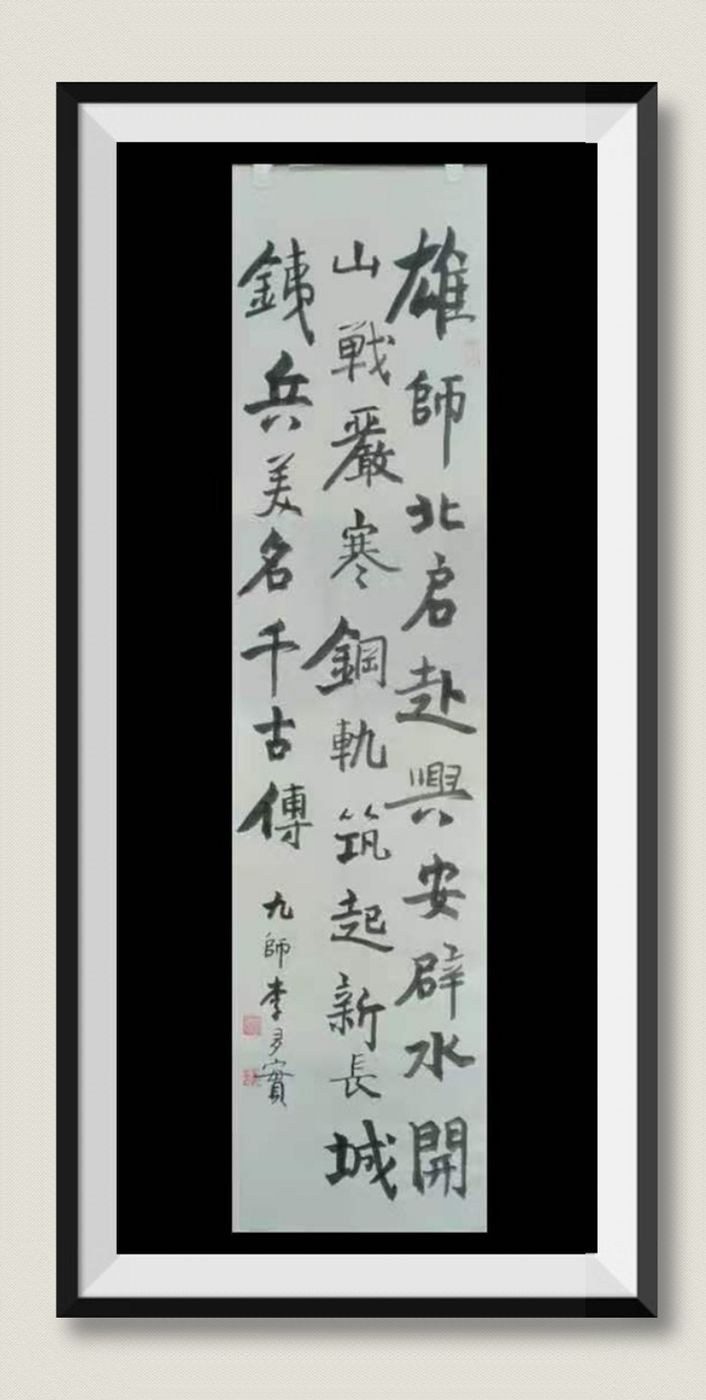 雄師北启赴興安辟水開
山戦嚴寒鋼軌筑起新長城
銕兵美名千古傳
九師李多實